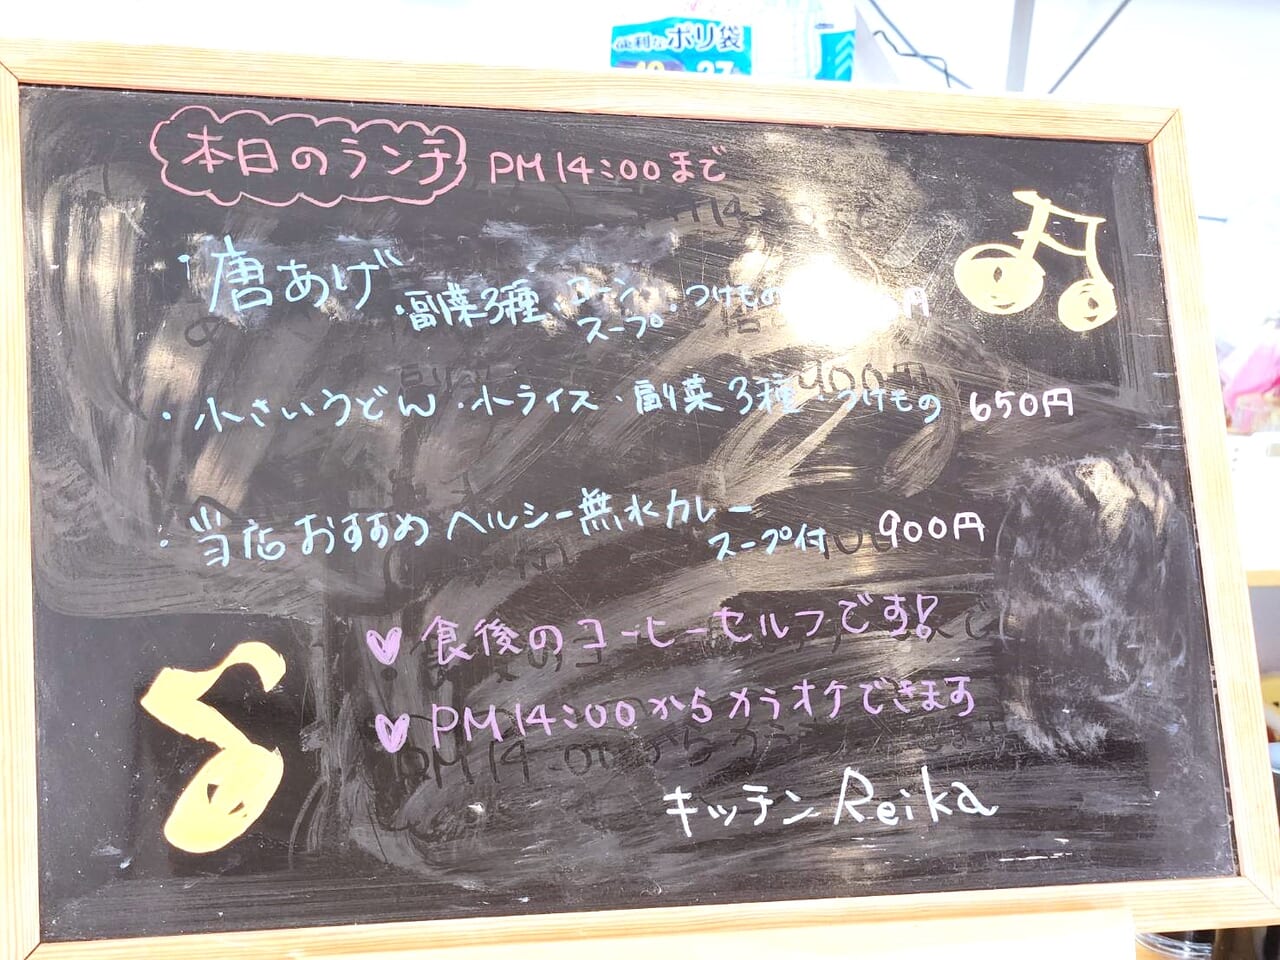 便利なポリ袋
本日のランチ PM14:00まで
・唐あげ ・副菜3種・コーンスープ・つけもの 円
・小さいうどん・小ライス・副菜3種・つけもの 650円
・当店おすすめヘルシー無水カレー スープ付 900円
♥食後のコーヒーセルフです!
♥PM14:00からカラオケできます
キッチンReika